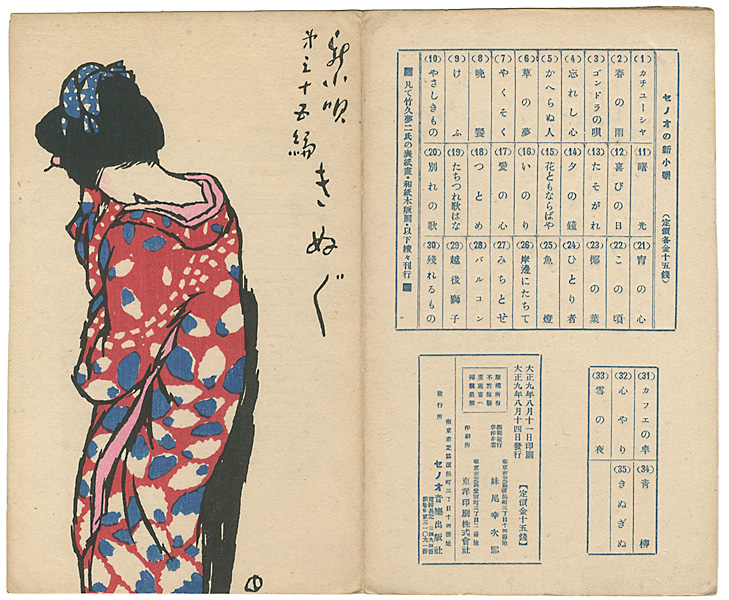 新小唄
第三十五編
きぬぐ
セノオの新小唄 (定價各金十五錢)
(1)カチユーシヤ
(2)春の雨
(3)ゴンドラの唄
(4)忘れし心
(5)かへらぬ人
(6)草の夢
(7)やくそく
(8)晩鐘
(9)けふ
(10)やさしきもの
(11)曙光
(12)喜びの日
(13)たそがれ
(14)夕の鐘
(15)花ともならばや
(16)いのり
(17)愛の心
(18)つとめ
(19)たちつれ歌はな
(20)別れの歌
(21)宵の心
(22)この頃
(23)椰の葉
(24)ひとり者
(25)魚燈
(26)岸邊にたちて
(27)みちとせ
(28)バルコン
(29)越後獅子
(30)殘れるもの
■凡て竹久夢二氏の表紙畫・和紙木版刷・以下續々刊行■
(31)カフエの卓
(32)心やり
(33)雪の夜
(34)青柳
(35)きぬぎぬ
大正九年八月十一日印刷
大正九年八月十四日發行
【定價金十五錢】
版權所有
不許複製
妹尾幸次郎
印刷所
東洋印刷株式會社
發行所
セノオ音樂出版社